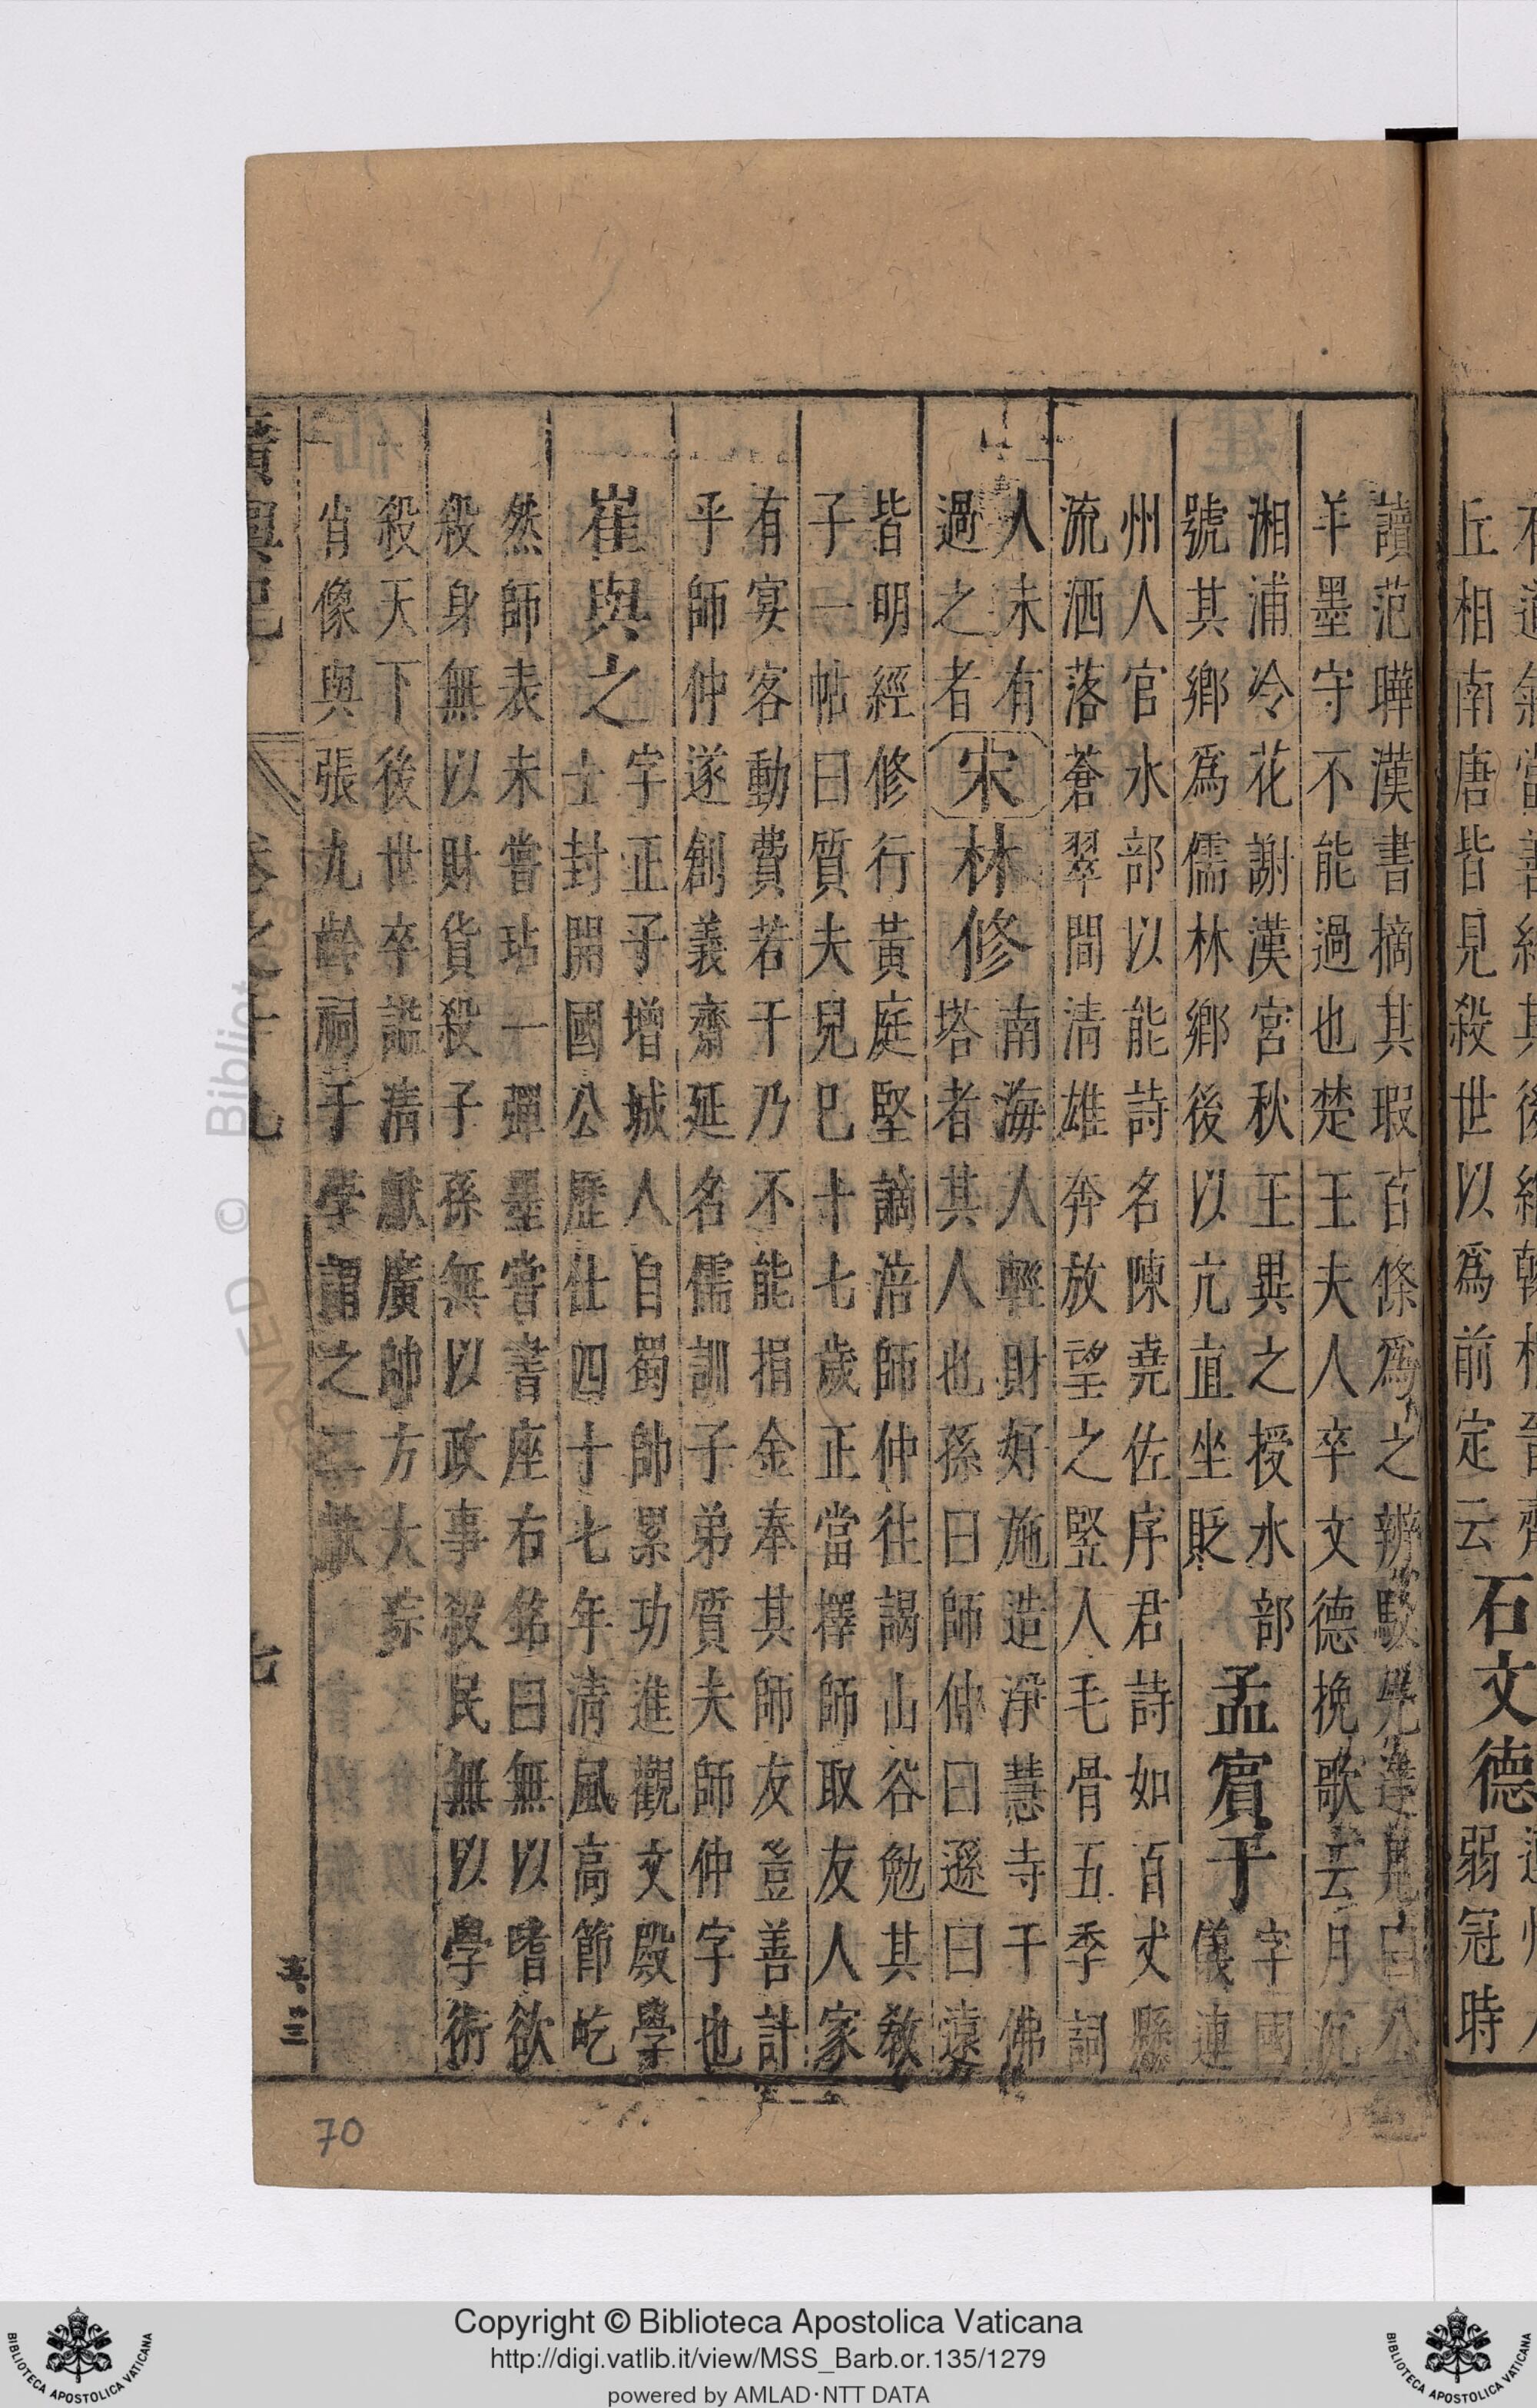 讀范曄漢書摘其瑕百條爲之辨駁
羊墨守不能過也楚王夫人卒文德挽歌云月沉
湘浦冷花謝漢宮秋王異之授水部
號其鄉爲儒林鄉後以亢直坐貶
孟賓于
字國
儀連
州人官水部以能詩名陳堯佐序君詩如百丈懸
流洒落蒼翠間清雄奔放望之竪人毛骨五季詞
人未有
過之者
宋
林修
南海人輕財好施造淨慧寺千佛
塔者其人也孫曰師仲曰遜曰遠
皆明經修行黃庭堅謫涪師仲往謁山谷勉其教
子一帖曰質夫兒已十七歲正當擇師取友人家
有宴客動費若干乃不能捐金奉其師友豈善計
乎師仲遂創義齋延名儒訓子弟質夫師仲字也
崔與之
字正子增城人自蜀帥累功進觀文殿學
士封開國公歷仕四十七年清風高節屹
然師表未嘗玷一彈墨嘗書座右銘曰無以嗜欲
殺身無以財貨殺子孫無以政事殺民無以學術
殺天下後世卒謚清獻廣帥方大琮
肖像與張九齡祠于學謂之二獻
卷之十九
七
70
丘相南唐皆見殺世以爲前定云
石文德
弱冠時
Copyright © Biblioteca Apostolica Vaticana
http://digi.vatlib.it/view/MSS_Barb.or.135/1279
powered by AMLAD·NTT DATA
BIBLIOTECA APOSTOLICA VATICANA
BIBLIOTECA APOSTOLICA VATICANA